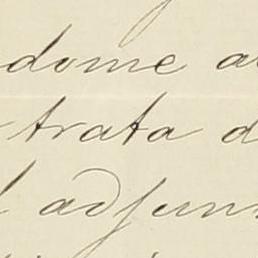 dome a
trata d
l adjun